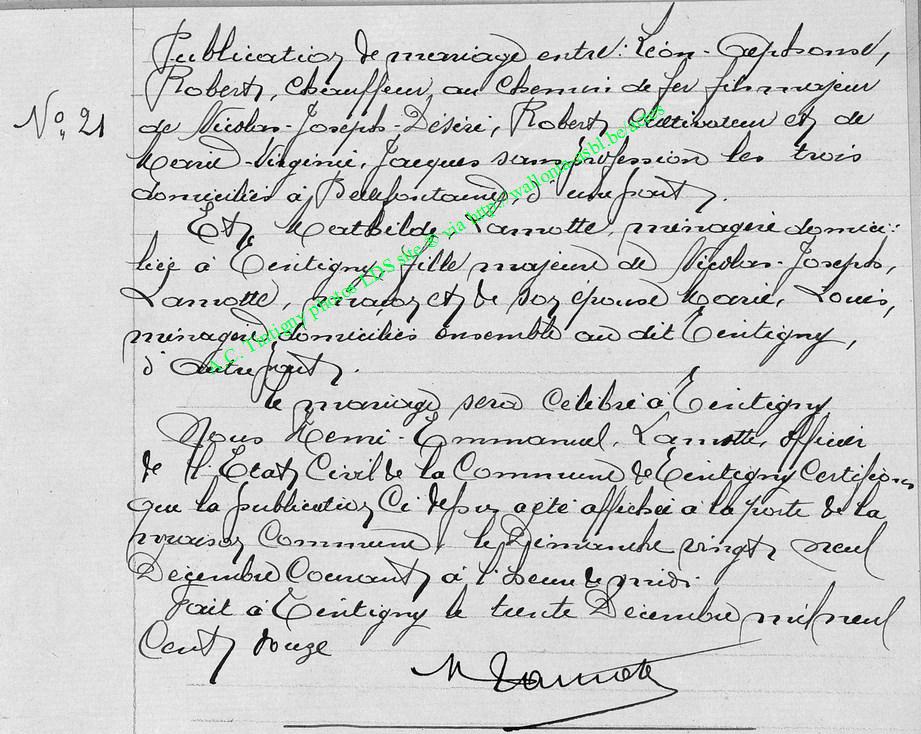 Publication de mariage entre: Léon-Alphonse,
N° 21
Robert, chauffeur, au chemin de fer fils majeur
de Nicolas-Joseph-Désiré, Robert, cultivateur et de
Marie-Virginie, Jacques sans profession les trois
domiciliés à Bellefontaine, d'une part,
Et Mathilde, Lamotte, ménagère domici:
liée à Tintigny, fille majeure de Nicolas-Joseph,
Lamotte, et de son épouse Marie, Louis,
ménagère, domiciliés ensemble au dit Tintigny,
d'autre part.
le mariage sera célébré à Tintigny
Nous Henri-Emmanuel, Lamotte, officier
de l'Etat Civil de la Commune de Tintigny Certifions
que la publication Ci dessus a été affichée à la porte de la
maison Commune, le Dimanche vingt neuf
Décembre Courant à l'heure de midi.
Fait à Tintigny le trente Décembre mil neuf
Cent douze
Lamotte
A.C. Tintigny photos LDS site © via http://wallonia-asbl.be/actes